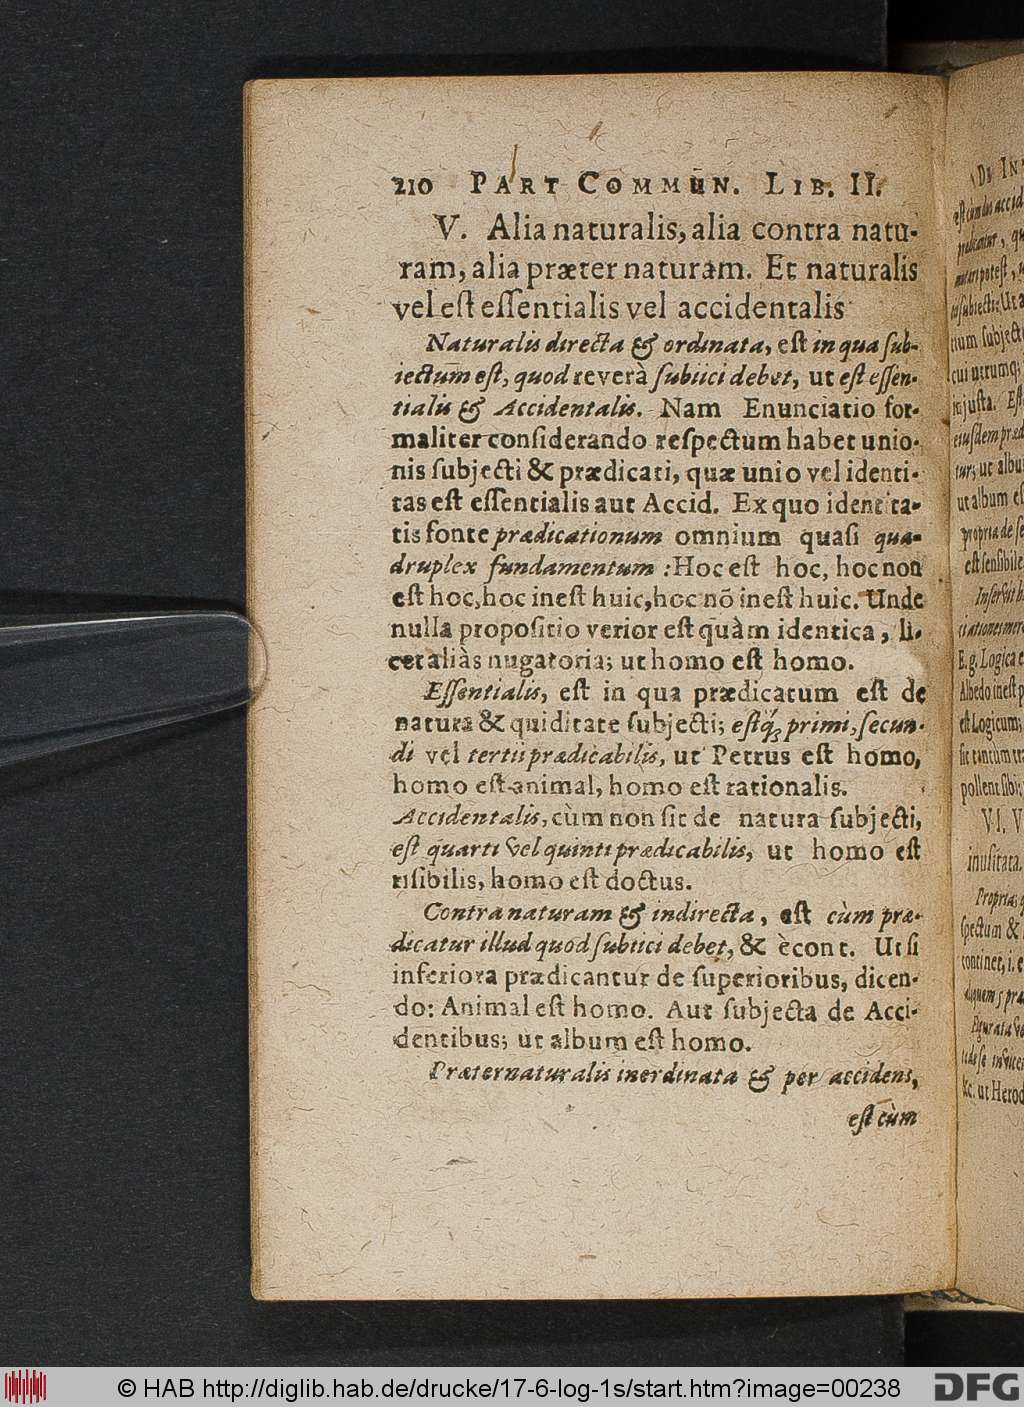 210 PART COMMUN. LIB. II.
V. Alia naturalis, alia contra natu-
ram, alia præter naturam. Et naturalis
vel eſt eſſentialis vel accidentalis
Naturalis directa & ordinata, eſt in qua ſub-
iectum eſt, quod reverà ſubiici debet, ut eſt eſſen-
tialis & Accidentalis. Nam Enunciatio for-
maliter conſiderando reſpectum habet unio-
nis ſubjecti & prædicati, quæ unio vel identi-
tas eſt eſſentialis aut Accid. Ex quo identita-
tis fonte prædicationum omnium quaſi qua-
druplex fundamentum : Hoc eſt hoc, hoc non
eſt hoc, hoc ineſt huic, hoc nõ ineſt huic. Unde
nulla propoſitio verior eſt quàm identica, li-
cet aliàs nugatoria; ut homo eſt homo.
Eſſentialis, eſt in qua prædicatum eſt de
natura & quiditate ſubjecti; eſtq́; primi, ſecun-
di vel tertii prædicabilis, ut Petrus eſt homo,
homo eſt animal, homo eſt rationalis.
Accidentalis, cùm non ſit de natura ſubjecti,
eſt quarti vel quinti prædicabilis, ut homo eſt
riſibilis, homo eſt doctus.
Contra naturam & indirecta, eſt cùm præ-
dicatur illud quod ſubiici debet, & è cont. Ut ſi
inferiora prædicantur de ſuperioribus, dicen-
do: Animal eſt homo. Aut ſubjecta de Acci-
dentibus; ut album eſt homo.
Præternaturalis inordinata & per accidens,
eſt cùm
DE IN
prædicantur, qu
tium ſubjecto
cui utrumq;
juſta. Eſt
eiuſdem præd
tur; ut albu
ut album eſ
propria de ſe
eſt ſenſibile
Inſervit h
E.g. Logica e
Albedo ineſt p
eſt Logicum;
ſit tantùm tra
pollent ſibi;
VI. V
inuſitata.
Propria; q
ſpectum &
continet, i. e
Figurata ve
&c. ut Herod
© HAB http://diglib.hab.de/drucke/17-6-log-1s/start.htm?image=00238
DFG